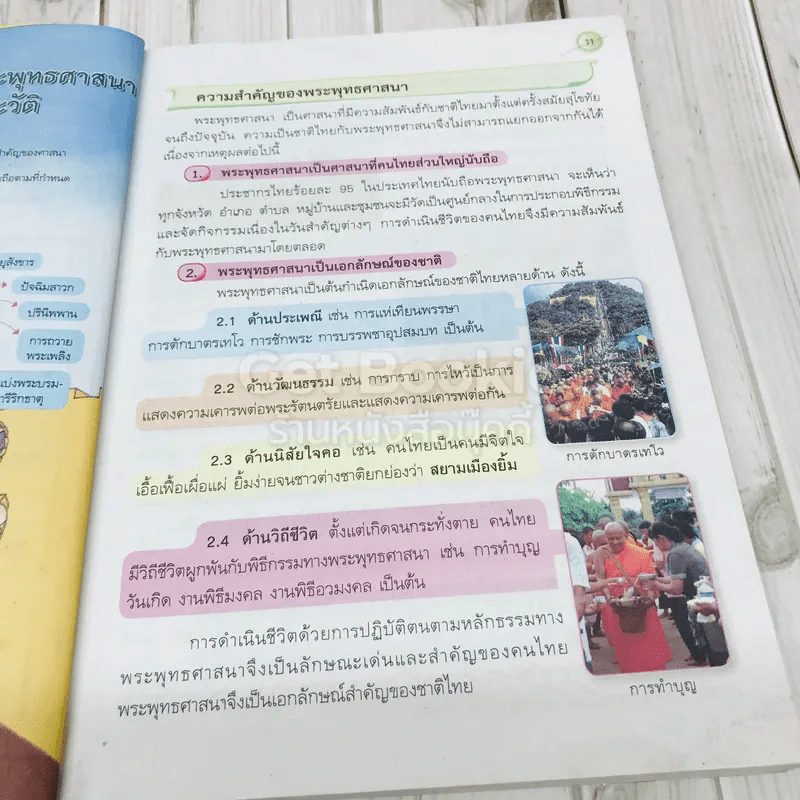 พุทธศาสนา
วัติ
สำคัญของศาสนา
ถือตามที่กำหนด
ยุสังขาร
ปัจฉิมสาวก
ปรินิพพาน
การถวาย
พระเพลิง
แบ่งพระบรม-
รีริกธาตุ
11
ความสำคัญของพระพุทธศาสนา
พระพุทธศาสนา เป็นศาสนาที่มีความสัมพันธ์กับชาติไทยมาตั้งแต่ครั้งสมัยสุโขทัย
จนถึงปัจจุบัน ความเป็นชาติไทยกับพระพุทธศาสนาจึงไม่สามารถแยกออกจากกันได้
เนื่องจากเหตุผลต่อไปนี้
1. พระพุทธศาสนาเป็นศาสนาที่คนไทยส่วนใหญ่นับถือ
ประชากรไทยร้อยละ 95 ในประเทศไทยนับถือพระพุทธศาสนา จะเห็นว่า
ทุกจังหวัด อำเภอ ตำบล หมู่บ้านและชุมชนจะมีวัดเป็นศูนย์กลางในการประกอบพิธีกรรม
และจัดกิจกรรมเนื่องในวันสำคัญต่างๆ การดำเนินชีวิตของคนไทยจึงมีความสัมพันธ์
กับพระพุทธศาสนามาโดยตลอด
2. พระพุทธศาสนาเป็นเอกลักษณ์ของชาติ
พระพุทธศาสนาเป็นต้นกำเนิดเอกลักษณ์ของชาติไทยหลายด้าน ดังนี้
2.1 ด้านประเพณี เช่น การแห่เทียนพรรษา
การตักบาตรเทโว การชักพระ การบรรพชาอุปสมบท เป็นต้น
2.2 ด้านวัฒนธรรม เช่น การกราบ การไหว้เป็นการ
แสดงความเคารพต่อพระรัตนตรัยและแสดงความเคารพต่อกัน
Get Booki
ร้านหนังสือบุ๊คกี้
การตักบาตรเทโว
2.3 ด้านนิสัยใจคอ เช่น คนไทยเป็นคนมีจิตใจ
เอื้อเฟื้อเผื่อแผ่ ยิ้มง่ายจนชาวต่างชาติยกย่องว่า สยามเมืองยิ้ม
2.4 ด้านวิถีชีวิต ตั้งแต่เกิดจนกระทั่งตาย คนไทย
มีวิถีชีวิตผูกพันกับพิธีกรรมทางพระพุทธศาสนา เช่น การทำบุญ
วันเกิด งานพิธีมงคล งานพิธีอวมงคล เป็นต้น
การดำเนินชีวิตด้วยการปฏิบัติตนตามหลักธรรมทาง
พระพุทธศาสนาจึงเป็นลักษณะเด่นและสำคัญของคนไทย
พระพุทธศาสนาจึงเป็นเอกลักษณ์สำคัญของชาติไทย
การทำบุญ